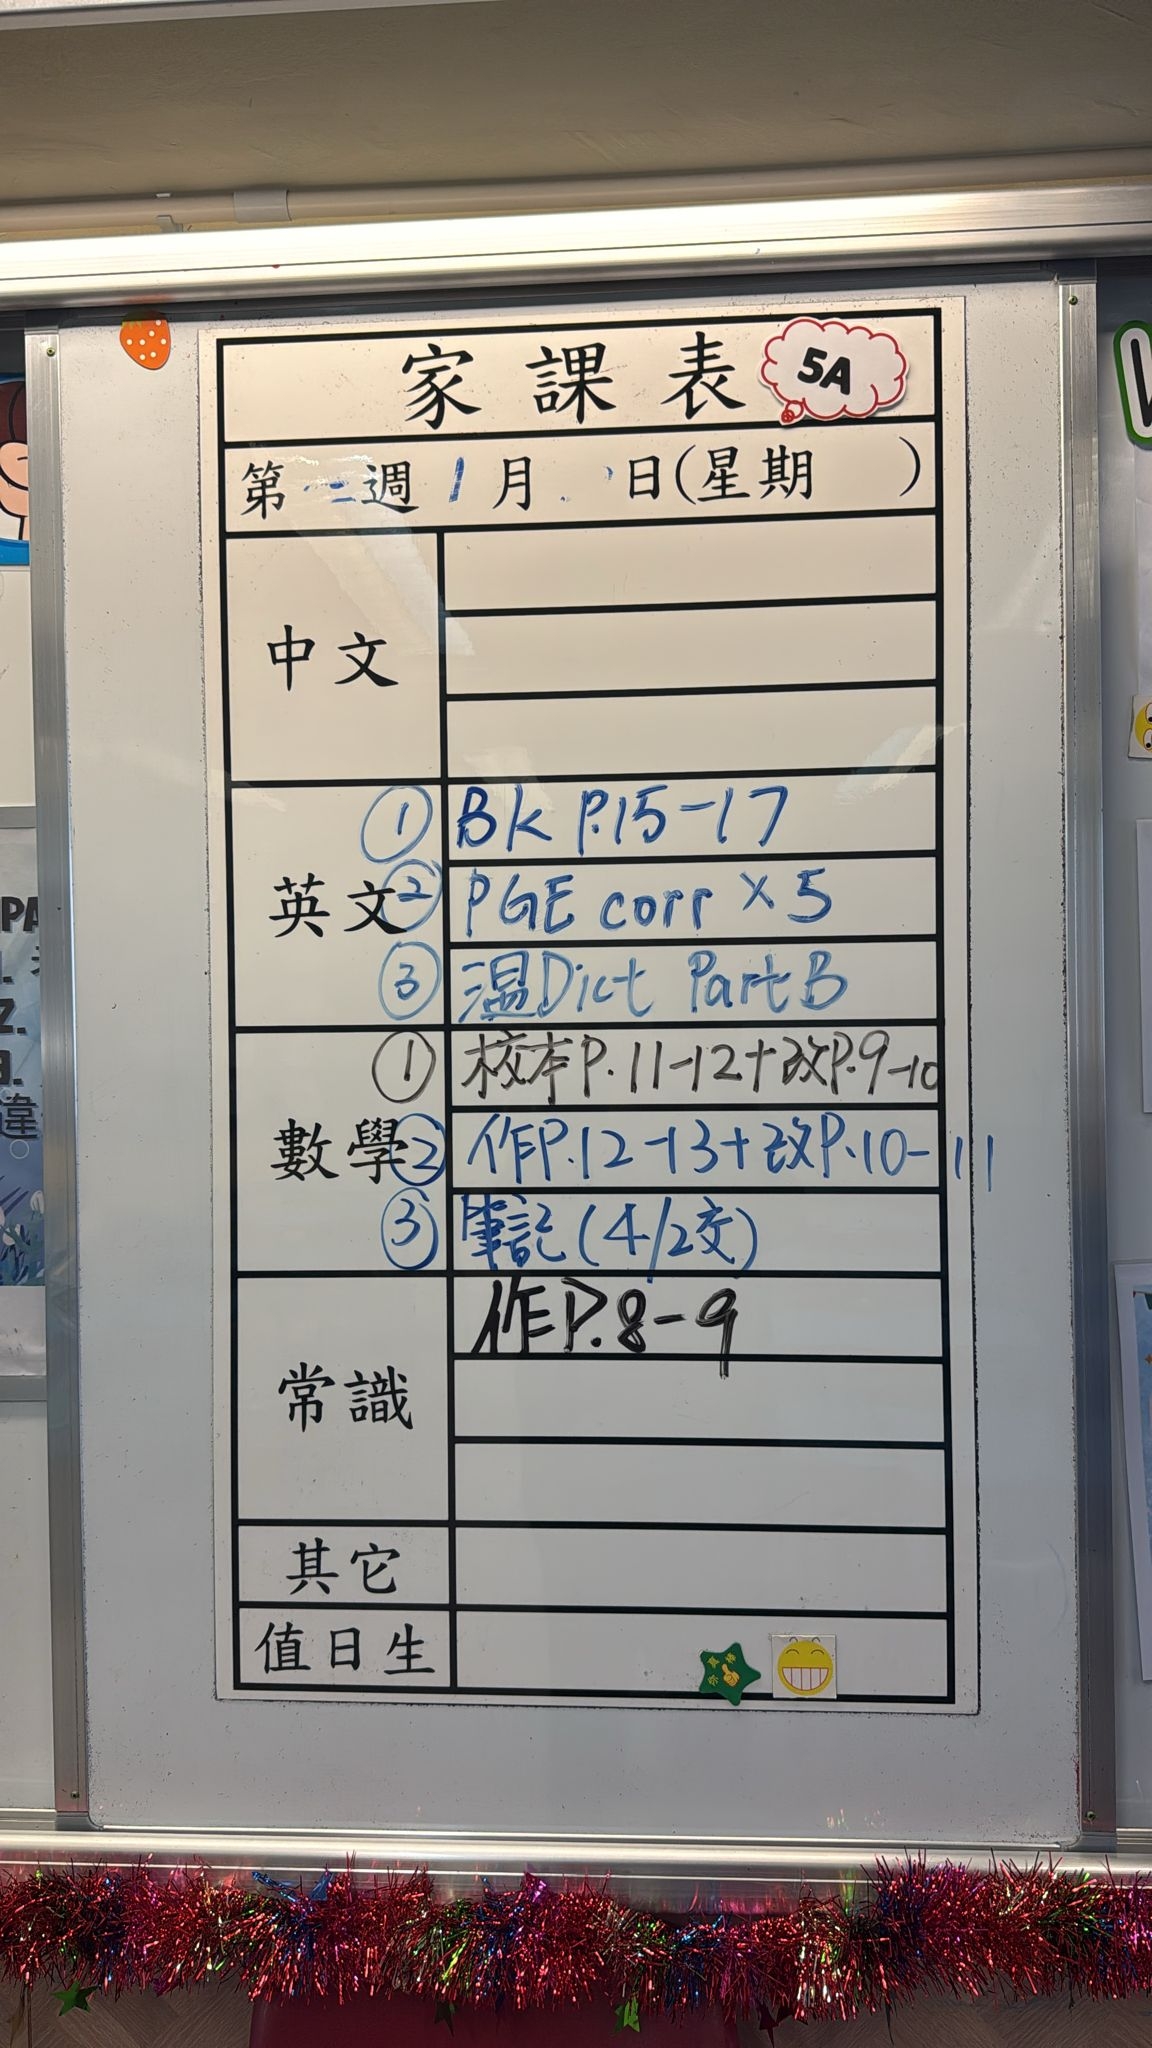 家課表 5A
第 週 1月 日(星期 )
中文
英文
① Bk P.15-17
② PGE corr × 5
③ 溫Dict Part B
數學
① 校本P.11-12+改P.9-10
② 作P.12-13+改P.10-11
③ 筆記(4/2交)
常識
作P.8-9
其它
值日生